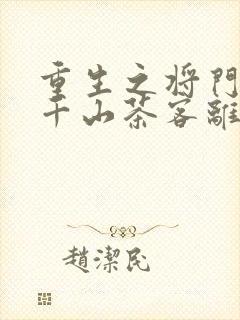 重生之将門
千山茶客離
趙潔民